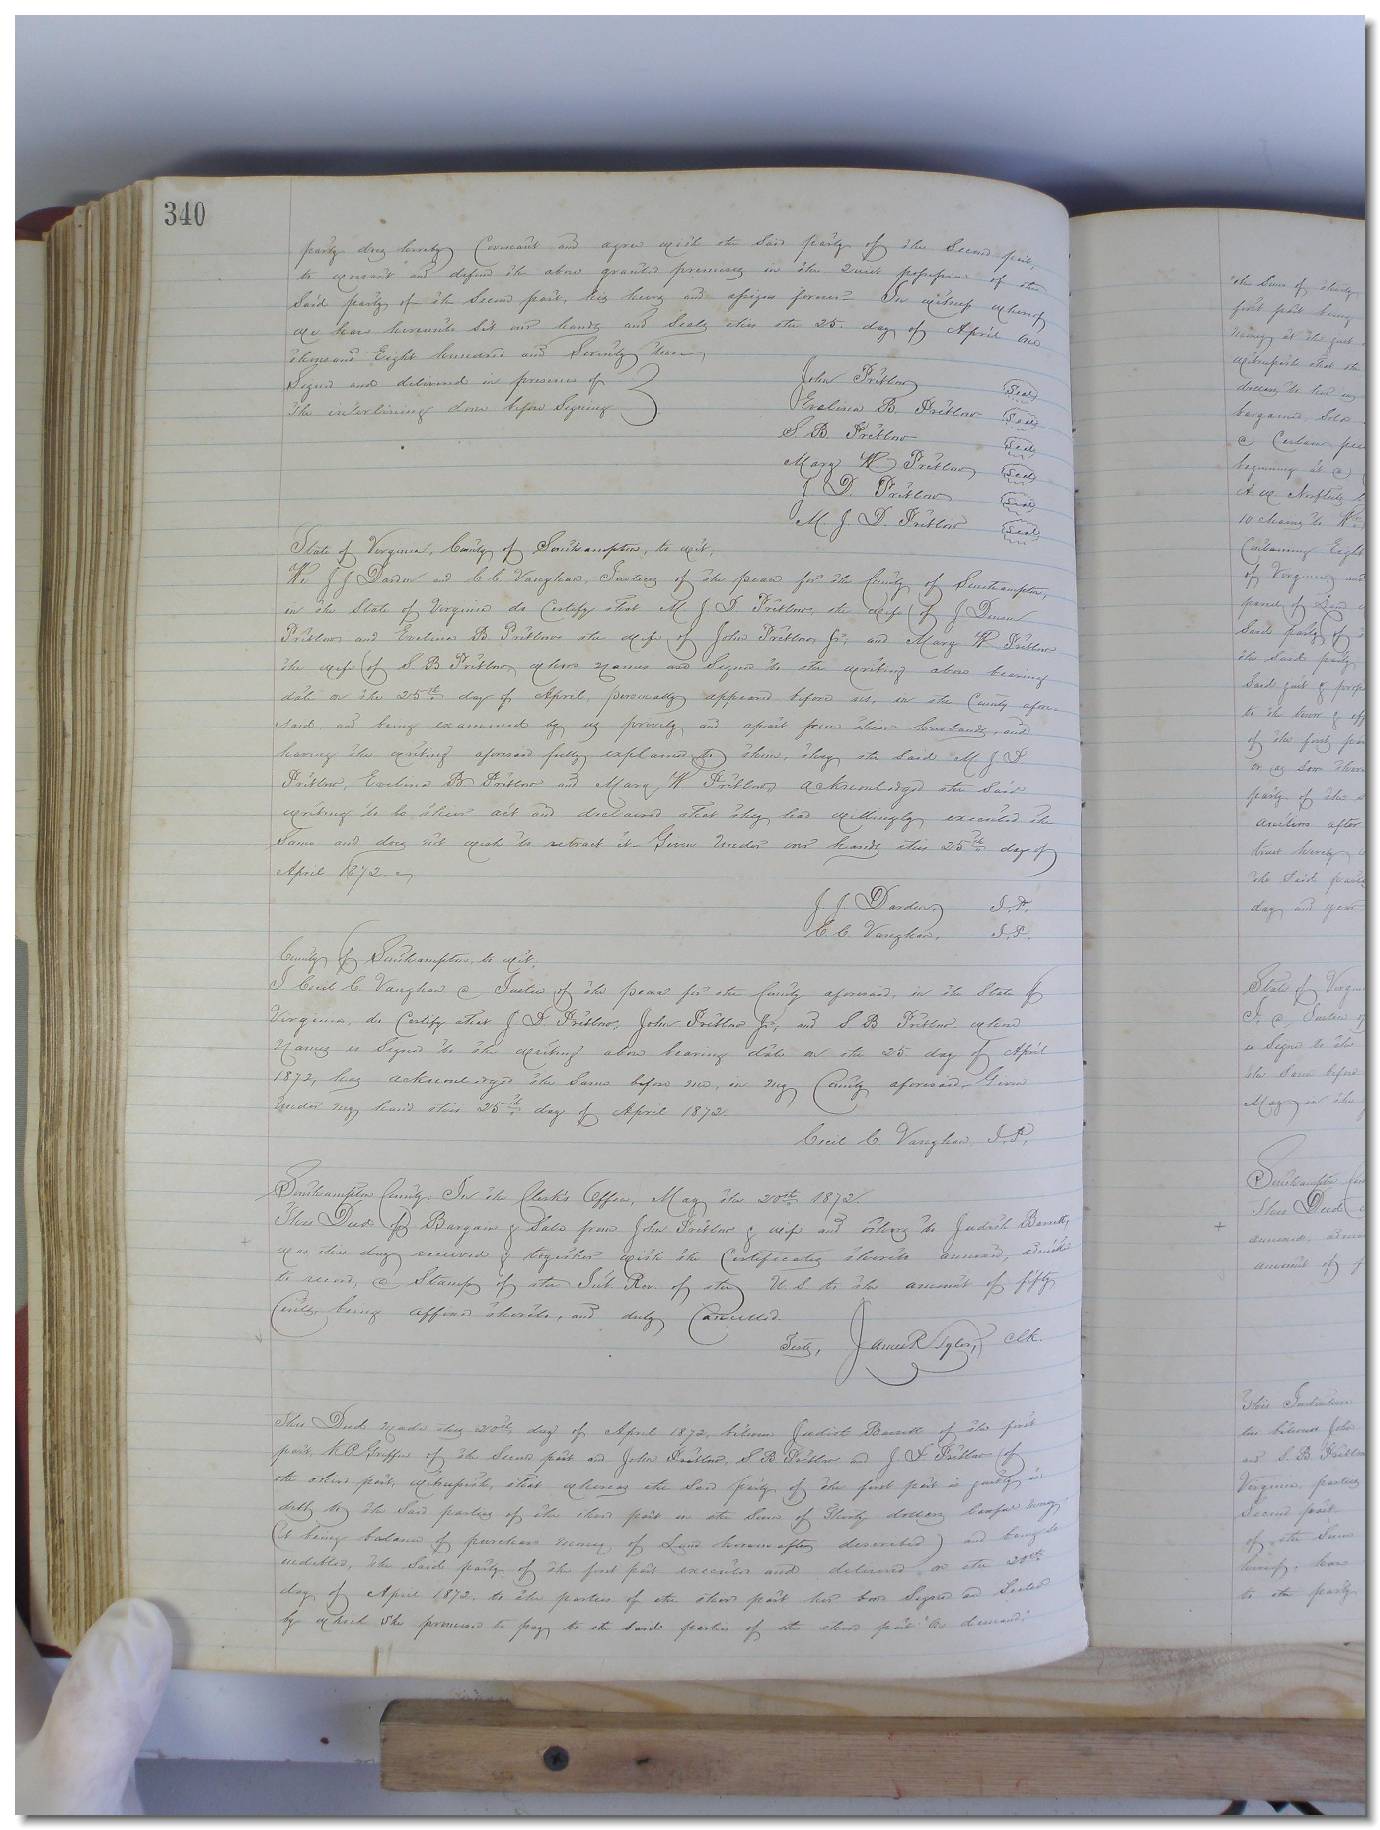 340
party doeg hereby Covenant and agree with the Said party of the Second part,
to warrant and defend the above granted premises in the Quiet possession of the
Said party of the Second part, his heirs and assigns forever. In witness whereof
we have hereunto Set our hands and Seals this the 25. day of April One
thousand Eight hundred and Seventy two
Signed and delivered in presence of
The interlining done before Signing
John Pretlow Seal
Evelina B. Pretlow Seal
S. B. Pretlow Seal
Mary W Pretlow Seal
J D. Pretlow Seal
M J. D. Pretlow Seal
State of Virginia, County of Southampton, to wit,
We J J Darden and C C. Vaughan, Justices of the peace for the County of Southampton,
in the State of Virginia do Certify that M J D Pretlow, the wife of J Denson
Pretlow and Evelina B Pretlow the wife of John Pretlow Jr, and Mary W Pretlow
the wife of S B Pretlow whose names are Signed to the writing above bearing
date on the 25th day of April, personally appeared before us, in the County afore-
said and being examined by us privily and apart from their husbands, and
having the writing aforesaid fully explained to them, they the Said M J D
Pretlow, Evelina B Pretlow and Mary W Pretlow acknowledged the Said
writing to be their act and declared that they had willingly executed the
Same and does not wish to retract it. Given Under our hands this 25th day of
April 1872.
J J Darden, J.P.
C C Vaughan, J.P.
County of Southampton, to wit,
I Cecil C Vaughan a Justice of the peace for the County aforesaid, in the State of
Virginia, do Certify that J D Pretlow, John Pretlow Jr, and S B Pretlow whose
Names is Signed to the writing above bearing date on the 25 day of April
1872, has acknowledged the Same before me, in my County aforesaid. Given
Under my hand this 25th day of April 1872
Cecil C Vaughan J.P.
Southampton County: In the Clerk's Office, May the 20th 1872.
This Deed of Bargain & Sale from John Pretlow & wife and others to Judith Barrett,
was this day received & together with the Certificates thereto annexed, admitted
to record, a Stamp of the Int. Rev. of the U. S. to the amount of fifty
Cents being affixed thereto, and duly Cancelled.
Teste, James R Tyler, Clk.
This Deed made this 20th day of April 1872, between Judith Barrett of the first
part, Griffin of the Second part and John Pretlow, S B Pretlow and J D Pretlow of
the other part, witnesseth, that whereas the Said party of the first part is justly in
debt to the Said parties of the third part in the Sum of Thirty dollars lawful money
(it being balance of purchase money of Land hereinafter described) and being so
indebted, the Said party of the first part executed and delivered on the 20th
day of April 1872, to the parties of the third part her bond Signed and Sealed
by which She promised to pay to the said parties of the third part "On demand"
the Sum of thirty
first part being
money at the
witnesseth that the
dollars to him in
bargained, Sold
a Certain
beginning at a
10 chains to
Containing Eight
of Virginia and
parcel of Land
Said party of
the Said party
to the
of the first
party of the
auction after
trust hereby
the Said
day and year
State of Virginia
I, a Justice of
is Signed to the
the Same before
May in the
Southampton
This Deed
annexed,
amount of
This Indenture
between John
and S. B. Pretlow
Virginia, parties
Second part
of the Sum
hereof, have
to the party